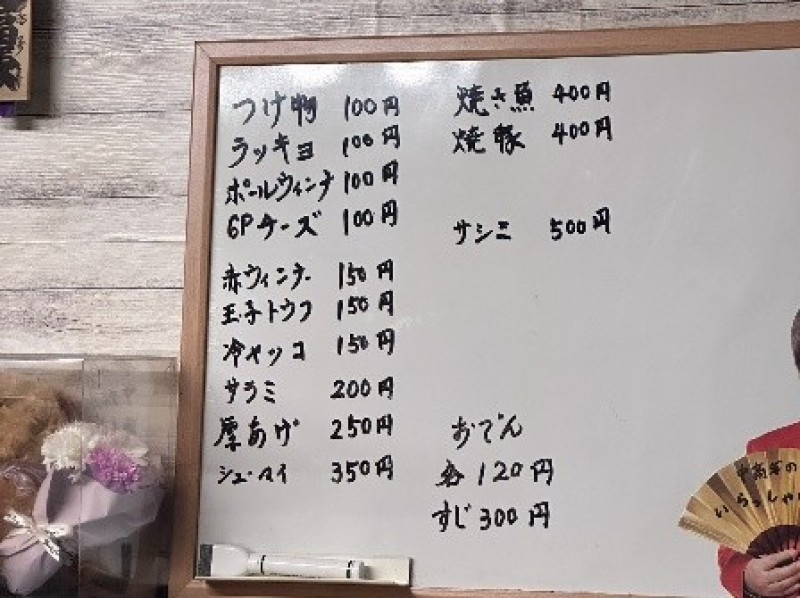 つけ物 100円
ラッキョ 100円
ポールウィンナ 100円
6Pチーズ 100円
赤ウィンナー 150円
玉子トウフ 150円
冷ヤッコ 150円
サラミ 200円
厚あげ 250円
シューマイ 350円
焼き魚 400円
焼豚 400円
サシミ 500円
おでん
各120円
すじ300円
いらっしゃ